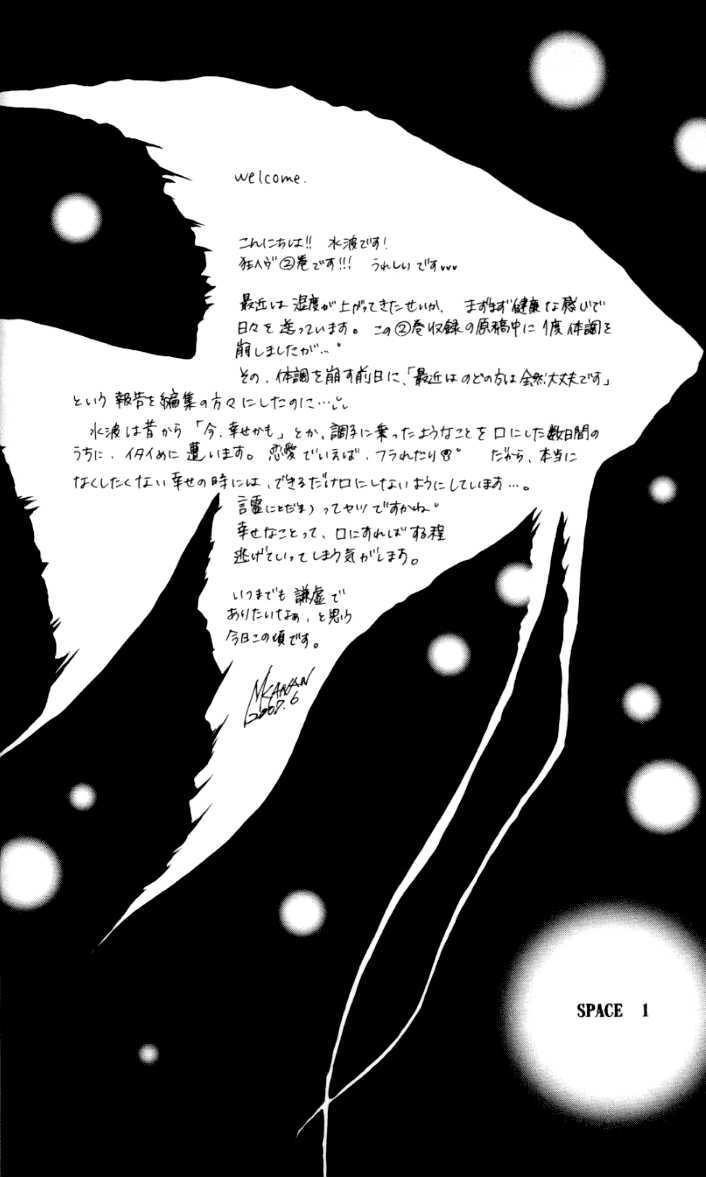 welcome.
こんにちは!! 水波です!
狂ヘヴ②巻です!!! うれしいです♥♥♥
最近は湿度が上がってきたせいか、まずまず健康な勢いで
日々を送っています。この②巻収録の原稿中に1度体調を
崩しましたが…。
その、体調を崩す前日に、「最近はのどの方は全然大丈夫です」
という報告を編集の方々にしたのに…
水波は昔から「今、幸せかも」とか、調子に乗ったようなことを口にした数日間の
うちに、イタイめに遭います。恋愛でいえば、フラれたり だから、本当に
なくしたくない幸せの時には、できるだけ口にしないようにしています…。
言霊(ことだま)ってヤツですかね。
幸せなことって、口にすればする程
逃げていってしまう気がします。
いつまでも謙虚で
ありたいなぁ、と思う
今日この頃です。
2007.6
SPACE 1